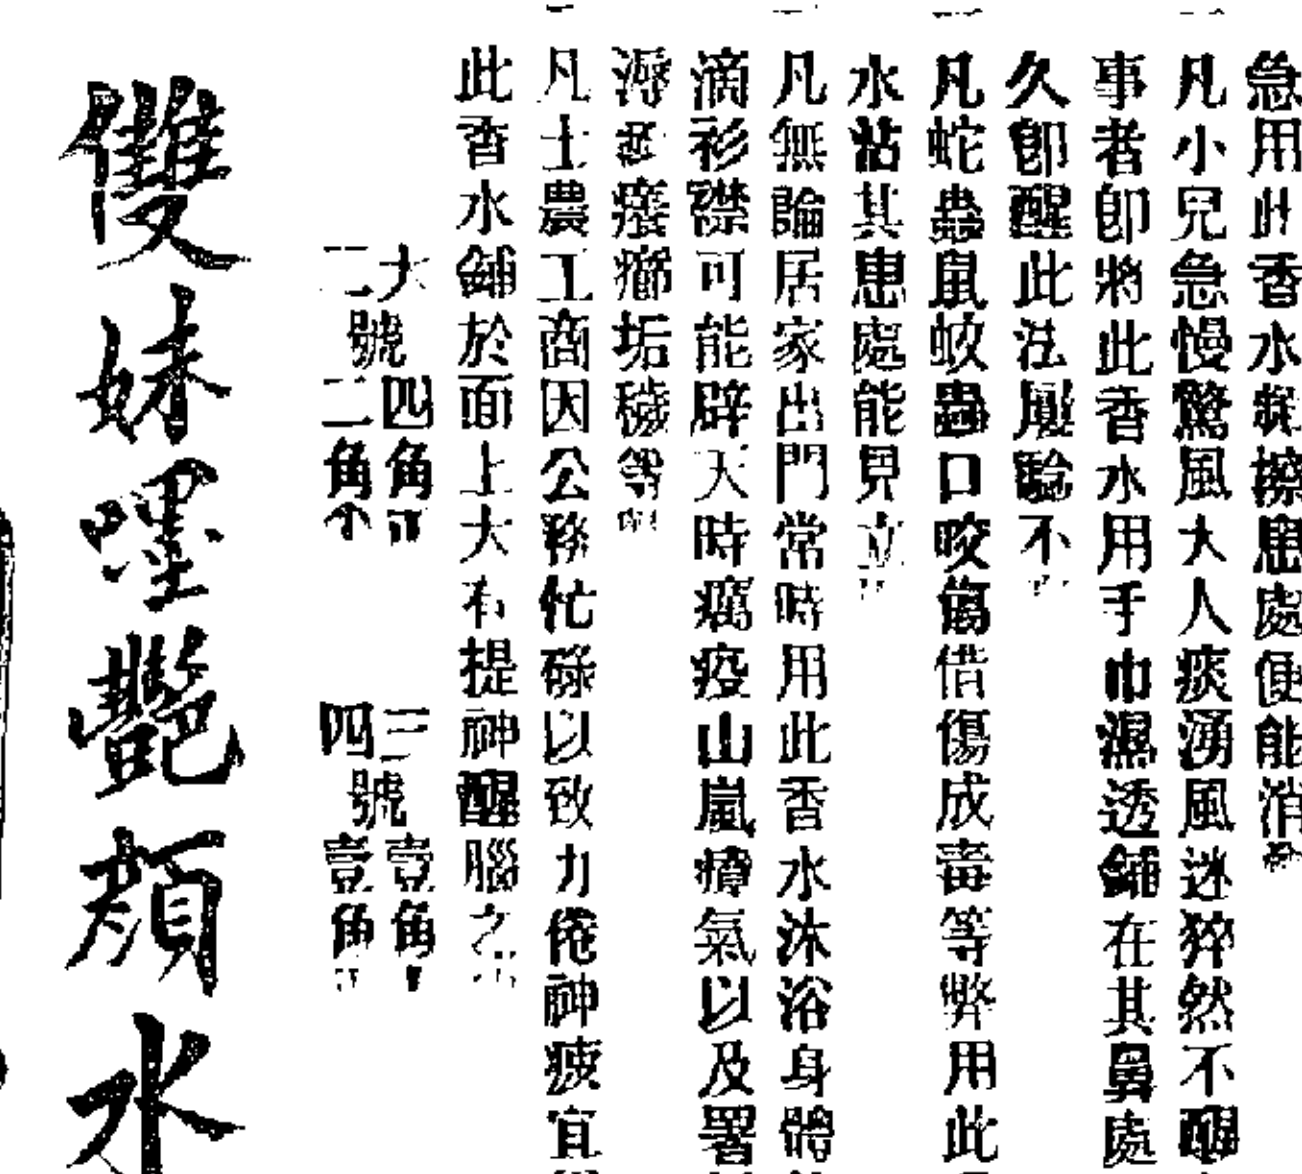 急用此香水搽患處便能消
凡小兒急慢驚風大人痰湧風迷猝然不醒
事者卽將此香水用手巾濕透鋪在其鼻處
久卽醒此法屢驗不
凡蛇蟲鼠蚊蟲口咬傷借傷成毒等弊用此
水沾其患處能見立
凡無論居家出門常時用此香水沐浴身體
滴衫襟可能辟天時癘疫山嵐瘴氣以及署
癢癤垢穢等
凡士農工商因公務忙碌以致力倦神疲宜
此香水鋪於面上大有提神醒腦之
大四角
二號二角
三壹角
四號壹角
雙妹嚜艷顏水